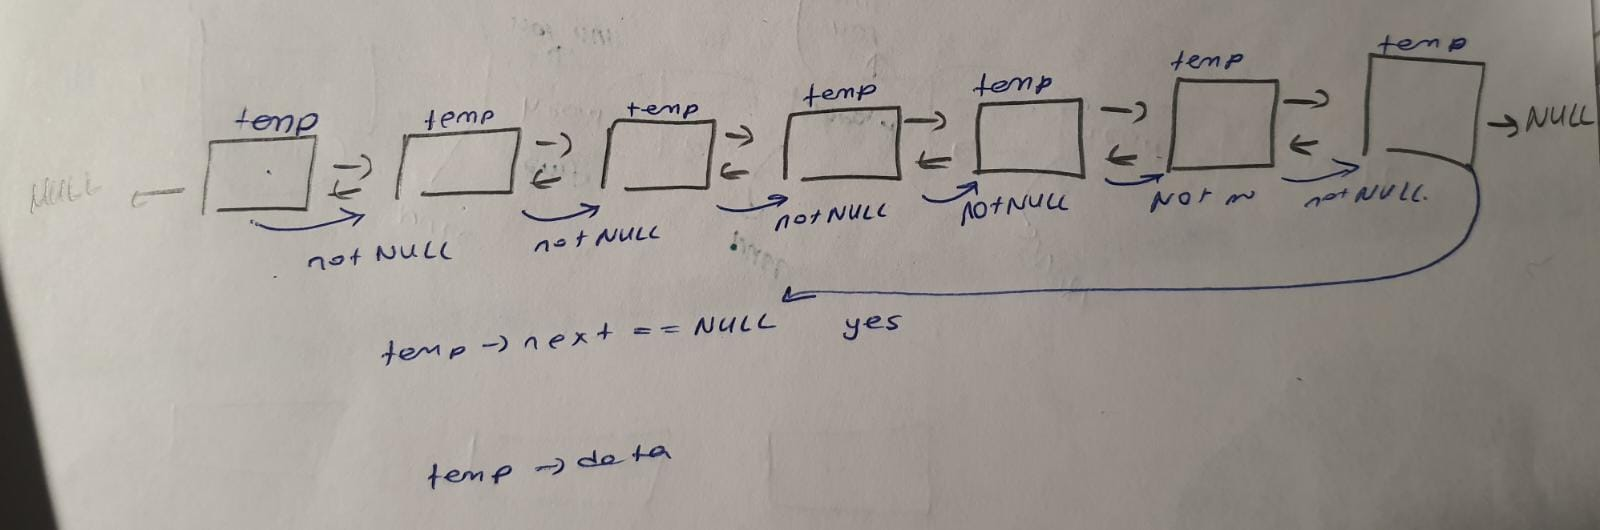 temp temp temp temp temp temp temp
NULL ← → ← → ← → ← → ← → ← → ← → NULL
not NULL not NULL not NULL not NULL Not not NULL.
temp → next == NULL yes
temp → data